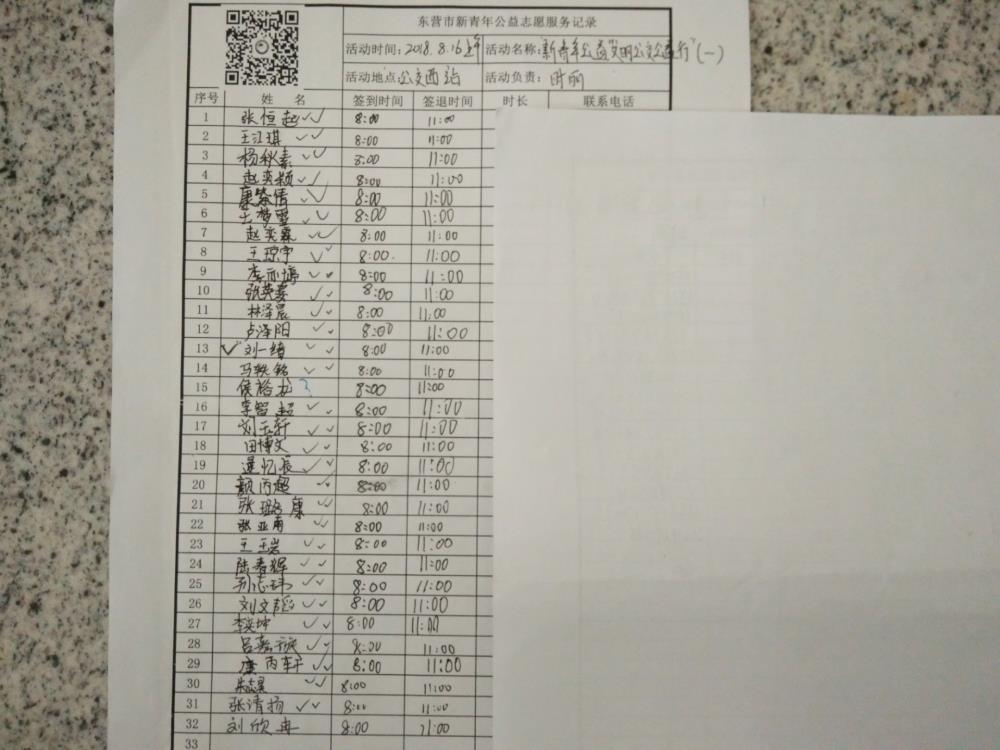 东营市新青年公益志愿服务记录
活动时间：2018.8.16上午 活动名称：新青年公益"文明公交公益行"(一)
活动地点：公交西站 活动负责：
序号 姓 名 签到时间 签退时间 时长 联系电话
1 张恒赵 8:00 11:00
2 王江琪 8:00 11:00
3 杨秋素 8:00 11:00
4 赵奕颖 8:00 11:00
5 8:00 11:00
6 王梦雪 8:00 11:00
7 赵奕霖 8:00 11:00
8 王琼宇 8:00 11:00
9 李雨婷 8:00 11:00
10 8:00 11:00
11 林泽宸 8:00 11:00
12 卢泽阳 8:00 11:00
13 刘一绪 8:00 11:00
14 马轶铭 8:00 11:00
15 侯裕龙 ? 8:00 11:00
16 李智超 8:00 11:00
17 刘玉轩 8:00 11:00
18 田博文 8:00 11:00
19 8:00 11:00
20 颜丙超 8:00 11:00
21 张璐康 8:00 11:00
22 张亚甯 8:00 11:00
23 王玉岩 8:00 11:00
24 陆春辉 8:00 11:00
25 孙志玮 8:00 11:00
26 刘文韬 8:00 11:00
27 李奕坤 8:00 11:00
28 8:00 11:00
29 唐丙轩 8:00 11:00
30 8:00 11:00
31 张清扬 8:00 11:00
32 刘欣冉 8:00 11:00
33